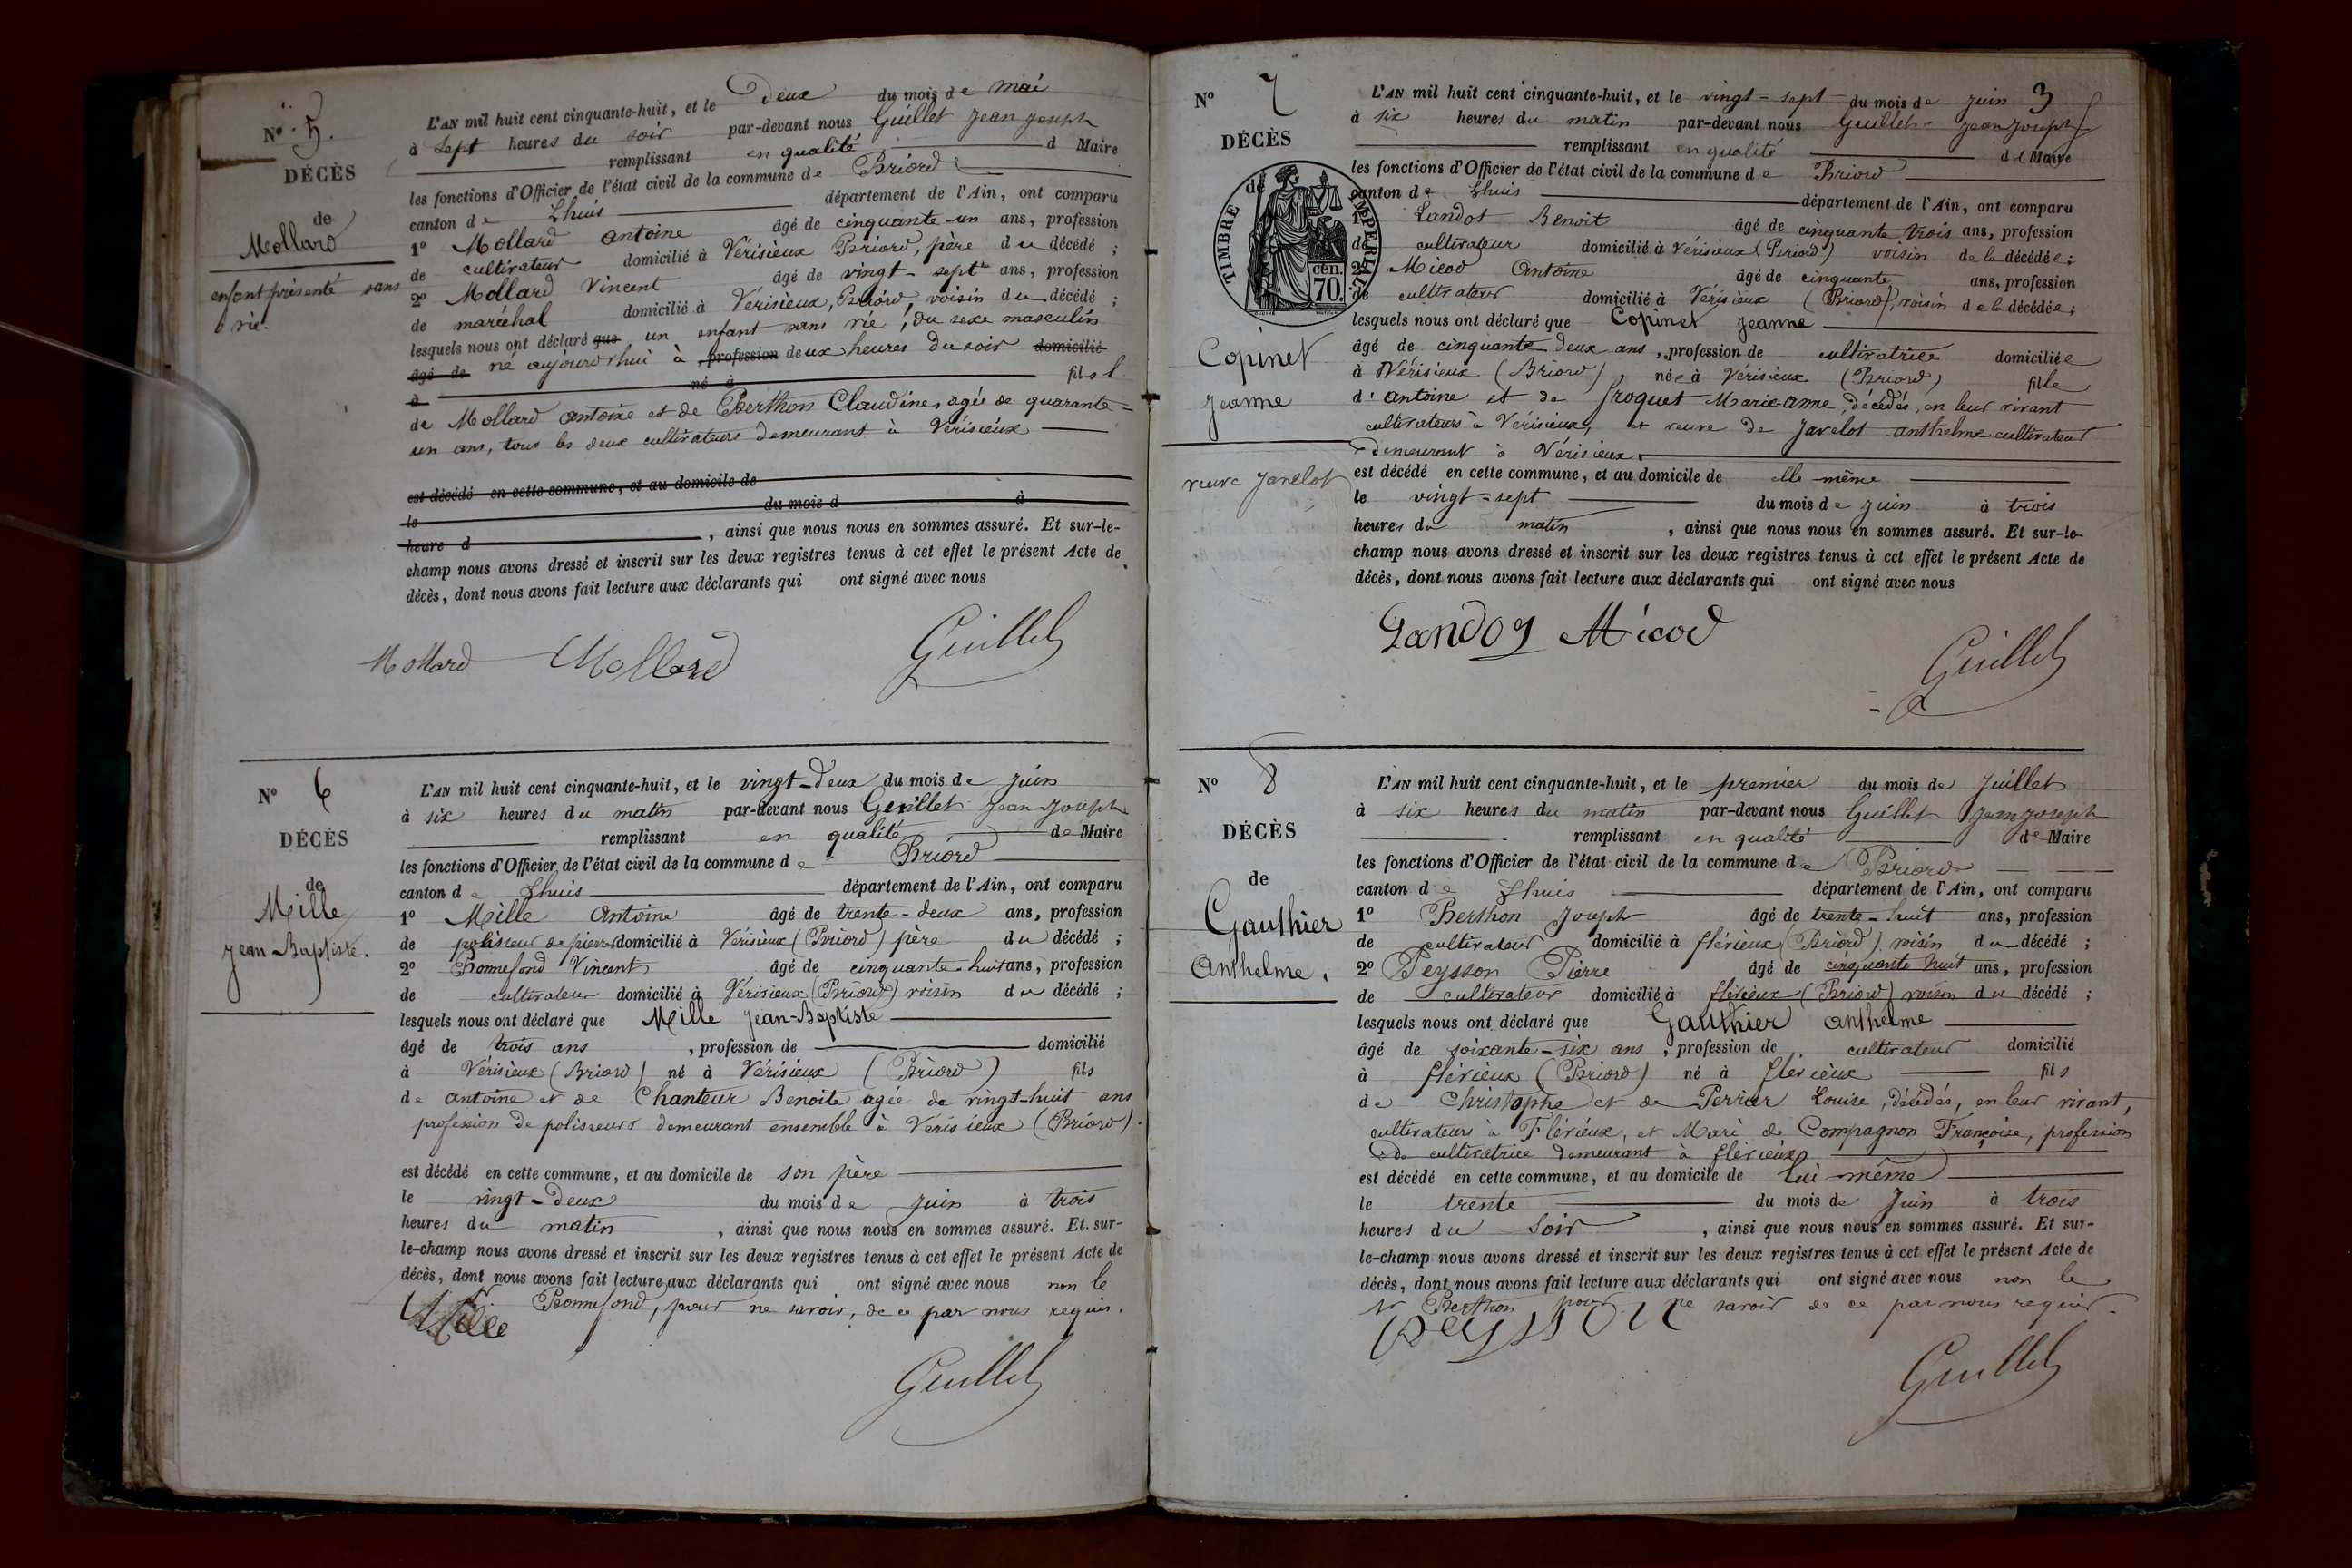 N° 5.
DÉCÈS
de
Mollard
enfant présenté sans
vie.
L'AN mil huit cent cinquante-huit, et le Deux du mois de mai
à sept heures du soir par-devant nous Guillet Jean Joseph
remplissant en qualité d Maire
les fonctions d'Officier de l'état civil de la commune de Briord
canton de Lhuis département de l'Ain, ont comparu
1° Mollard Antoine âgé de cinquante-un ans, profession
de cultivateur domicilié à Vérisieux Briord, père du décédé ;
2° Mollard Vincent âgé de vingt-sept ans, profession
de maréchal domicilié à Vérisieux, Briord, voisin du décédé ;
lesquels nous ont déclaré que un enfant sans vie, du sexe masculin
âgé de né aujourd'hui à , profession deux heures du soir domicilié
à né à fils
de Mollard Antoine et de Berthon Claudine, agée de quarante-
un ans, tous les deux cultivateurs demeurant à Vérisieux
est décédé en cette commune, et au domicile de
le du mois d à
heure d , ainsi que nous nous en sommes assuré. Et sur-le-
champ nous avons dressé et inscrit sur les deux registres tenus à cet effet le présent Acte de
décès, dont nous avons fait lecture aux déclarants qui ont signé avec nous
Mollard Mollard Guillet
N° 6
DÉCÈS
de
Mille
Jean-Baptiste.
L'AN mil huit cent cinquante-huit, et le vingt-deux du mois de juin
à six heures du matin par-devant nous Guillet Jean Joseph
remplissant en qualité de Maire
les fonctions d'Officier de l'état civil de la commune de Briord
canton de Lhuis département de l'Ain, ont comparu
1° Mille Antoine âgé de trente-deux ans, profession
de polisseur de pierres domicilié à Vérisieux (Briord) père du décédé ;
2° Bonnefond Vincent âgé de cinquante-huit ans, profession
de cultivateur domicilié à Vérisieux (Briord) voisin du décédé ;
lesquels nous ont déclaré que Mille Jean-Baptiste
âgé de trois ans , profession de domicilié
à Vérisieux (Briord) né à Vérisieux (Briord) fils
de Antoine et de Chanteur Benoite agée de vingt-huit ans
profession de polisseurs demeurant ensemble à Vérisieux (Briord).
est décédé en cette commune, et au domicile de son père
le vingt-deux du mois de juin à trois
heures du matin , ainsi que nous nous en sommes assuré. Et sur-
le-champ nous avons dressé et inscrit sur les deux registres tenus à cet effet le présent Acte de
décès, dont nous avons fait lecture aux déclarants qui ont signé avec nous non le
Sr Bonnefond, pour ne savoir, de ce par nous requis.
Mille
Guillet
3
N° 7
DÉCÈS
de
TIMBRE IMPÉRIAL
70. cen.
Copinet
Jeanne
veuve Javelot
L'AN mil huit cent cinquante-huit, et le vingt-sept du mois de juin
à six heures du matin par-devant nous Guillet Jean Joseph
remplissant en qualité de Maire
les fonctions d'Officier de l'état civil de la commune de Briord
canton de Lhuis département de l'Ain, ont comparu
1° Landot Benoit âgé de cinquante trois ans, profession
de cultivateur domicilié à Vérisieux (Briord) voisin de la décédée ;
2° Micod Antoine âgé de cinquante ans, profession
de cultivateur domicilié à Vérisieux (Briord), voisin de la décédée ;
lesquels nous ont déclaré que Copinet Jeanne
âgé de cinquante deux ans , profession de cultivatrice domiciliée
à Vérisieux (Briord), née à Vérisieux (Briord) fille
d'Antoine et de Froquet Marie-anne, décédés, en leur vivant
cultivateurs à Vérisieux, et veuve de Javelot Anthelme cultivateur
demeurant à Vérisieux.
est décédé en cette commune, et au domicile de elle-même
le vingt-sept du mois de juin à trois
heures du matin , ainsi que nous nous en sommes assuré. Et sur-le-
champ nous avons dressé et inscrit sur les deux registres tenus à cet effet le présent Acte de
décès, dont nous avons fait lecture aux déclarants qui ont signé avec nous
Landot Micod
Guillet
N° 8
DÉCÈS
de
Gauthier
Anthelme.
L'AN mil huit cent cinquante-huit, et le premier du mois de Juillet
à six heures du matin par-devant nous Guillet Jean Joseph
remplissant en qualité de Maire
les fonctions d'Officier de l'état civil de la commune de Briord
canton de Lhuis département de l'Ain, ont comparu
1° Berthon Joseph âgé de trente-huit ans, profession
de cultivateur domicilié à flérieux (Briord) voisin du décédé ;
2° Peysson Pierre âgé de cinquante huit ans, profession
de cultivateur domicilié à flérieux (Briord) voisin du décédé ;
lesquels nous ont déclaré que Gauthier Anthelme
âgé de soixante-six ans , profession de cultivateur domicilié
à flérieux (Briord) né à flérieux fils
de Christophe et de Perrier Louise, décédés, en leur vivant,
cultivateurs à Flérieux, et Mari de Compagnon Françoise, profession
de cultivatrice demeurant à flérieux
est décédé en cette commune, et au domicile de lui-même
le trente du mois de Juin à trois
heures du Soir , ainsi que nous nous en sommes assuré. Et sur-
le-champ nous avons dressé et inscrit sur les deux registres tenus à cet effet le présent Acte de
décès, dont nous avons fait lecture aux déclarants qui ont signé avec nous non le
Sr Berthon pour ne savoir de ce par nous requis.
peysson
Guillet